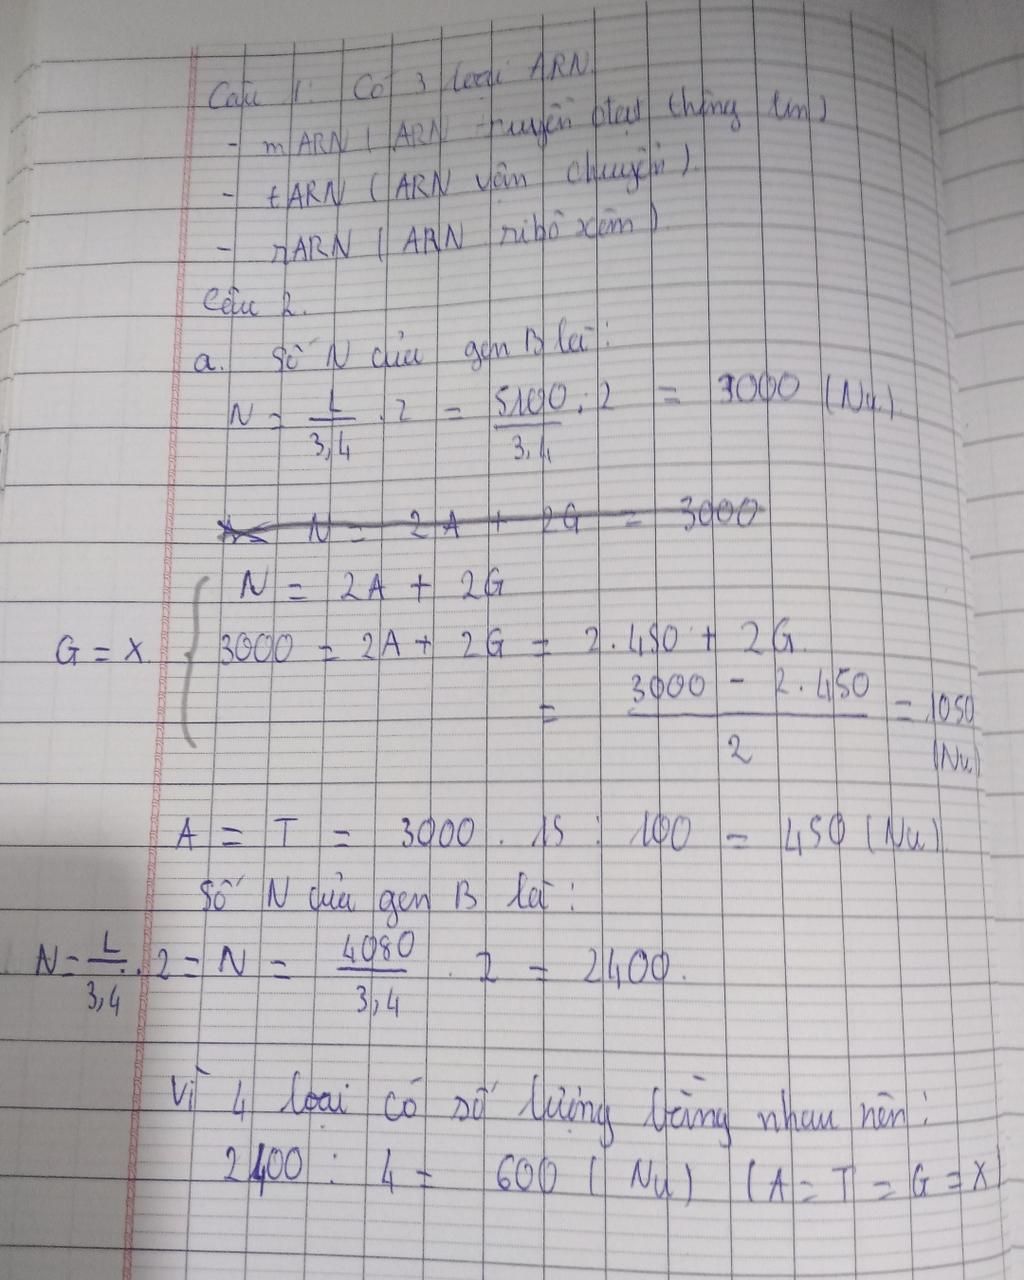 Câu 1: Có 3 loại ARN
- mARN ( ARN truyền đạt thông tin)
- tARN ( ARN vận chuyển)
- rARN ( ARN ribôxôm)
Câu 2.
a. Số N của gen B là:
N = L/3,4 . 2 = 5100/3,4 . 2 = 3000 (Nu)
N = 2A + 2G = 3000
N = 2A + 2G
G = X 3000 = 2A + 2G = 2.450 + 2G
= (3000 - 2.450)/2 = 1050 (Nu)
A = T = 3000 . 15 : 100 = 450 (Nu)
Số N của gen B là:
N = L/3,4 . 2 = N = 4080/3,4 . 2 = 2400.
Vì 4 loại có số lượng bằng nhau nên:
2400 : 4 = 600 ( Nu) (A = T = G = X)